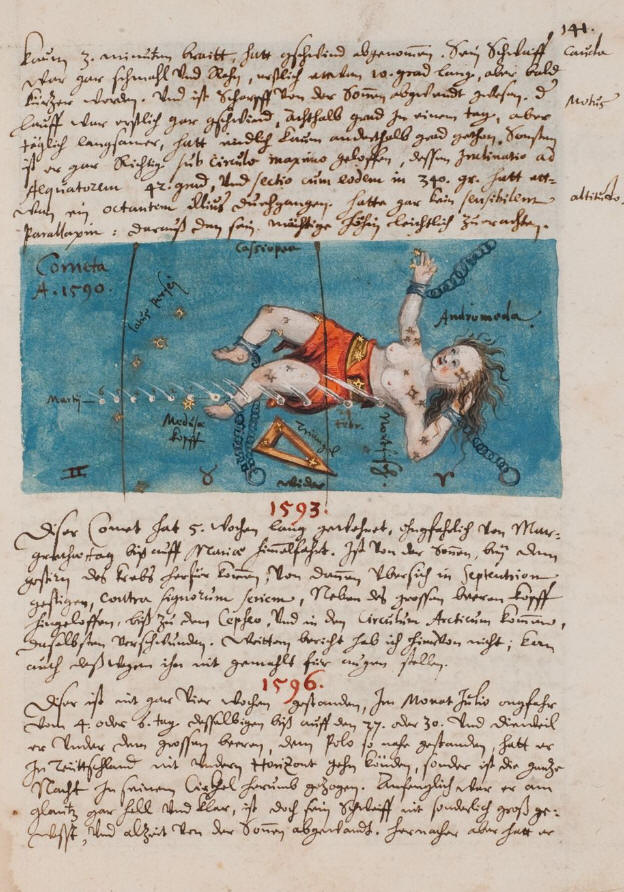 141.
kaum 3. minuten breitt, hatt geschwind abgenommen. Sein Schwaiff
cauda
war gar schmahl und Rahn, erstlich ettwan 10. grad lang, aber bald
kürtzer worden. Und ist Scharpff von der Sonnen abgewendt gewesen. d
Motus
lauff war erstlich gar geschwind, achthalb grad in einem tag, aber
täglich langsamer, hatt endlich kaum anderthalb grad gethan. Sonsten
ist er gar Richtig sub circulo maximo geloffen, dessen Inclinatio ad
Aequatorem 42. grad, und sectio cum eodem in 340. gr. hatt ett-
wan ein octantem illius durchgangen. hatte gar kein sensibilem
altitudo.
Parallaxin: darauß den sein mächtige höhin leichtlich zu erachten.
Cassiopea
Cometa
A. 1590.
Persej
Andromeda.
Martij
Medusae
Kopff
Triangel
Febr.
II
♉
Wider
♈
1593.
Diser Comet hat 5. Wochen lang gewehret, ungefehrlich von Mar-
grethæ tag biß auff Mariæ himmelfahrt. Ist von der Sonnen, bey dem
gestirn des Krebs herfür kommen, von dannen übersich in Septentrion
gestigen, contra signorum seriem, Neben des grossen beeren Kopff
hingeloffen, biß zu dem Cepheo, und in den Circulum Arcticum kommen,
daselbsten verschwunden. Weittern bericht hab ich hievon nicht; kan
auch deßwegen ihn nit gemahlt für augen stellen.
1596.
Diser ist nit gar vier wochen gestanden, Im Monat Julio ongfahr
vom 4. oder 6. tag desselbigen biß auff den 27. oder 30. Und dieweil
er under dem grossen beeren, dem Polo so nahe gestanden, hatt er
In Teüttschland nit undern Horizont gehn können, sonder ist die gantze
Nacht In seinem Cirkel herumb gezogen. Anfenglich war er am
glantz gar hell und klar, ist doch sein Schwaiff nit sonderlich groß ge-
wesst, und alzeit von der Sonnen abgewandt. hernacher aber hatt er